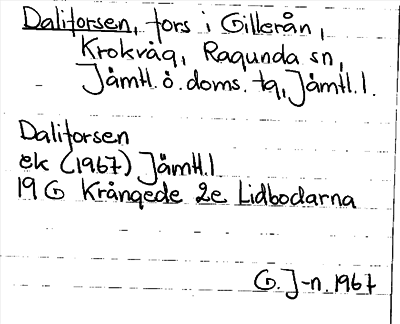 Daliforsen, fors i Gillerån,
Krokvåg, Ragunda sn,
Jämtl. ö. doms. tg, Jämtl. l.
Daliforsen
ek (1967) Jämtl. l
19 G Krångede 2e Lidbodarna
G. J-n. 1967